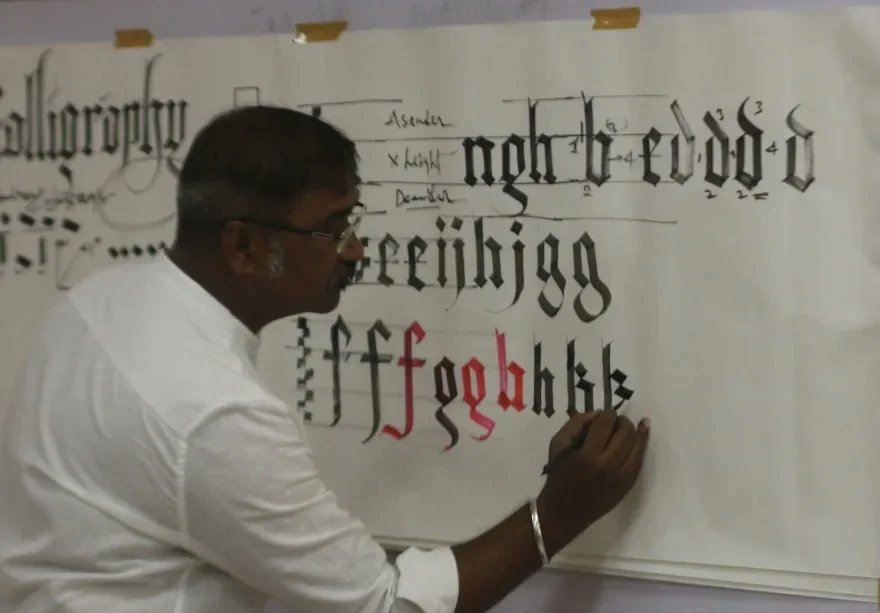 Calligraphy
Asender
x height
Decender
ngh b e d d d d
1 2 4 2 3 2 3 4
e e e i j h j g g
f f f g g h h k k